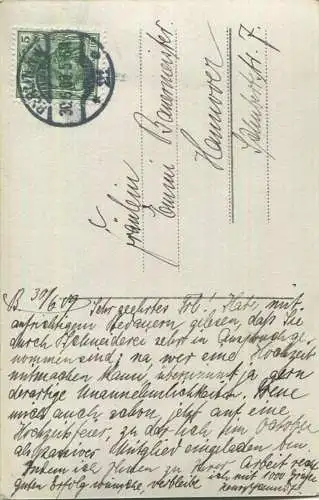 Fräulein
Emmi Bauermeister
Hannover
B 30/6 09 Sehr geehrtes Frl.! Habe mit
aufrichtigem Bedauern gelesen, daß Sie
durch Schneiderei sehr in Anspruch ge-
nommen sind; na wer eine Hochzeit
mitmachen kann übernimmt ja gern
derartige Unannehmlichkeiten. Freue
mich auch schon jetzt auf eine
Hochzeitsfeier, zu der ich im October
als passives Mitglied eingeladen bin
Indem ich Ihnen zu Ihrer Arbeit recht
guten Erfolg wünsche, verbleibe ich mit 1000 Grüßen